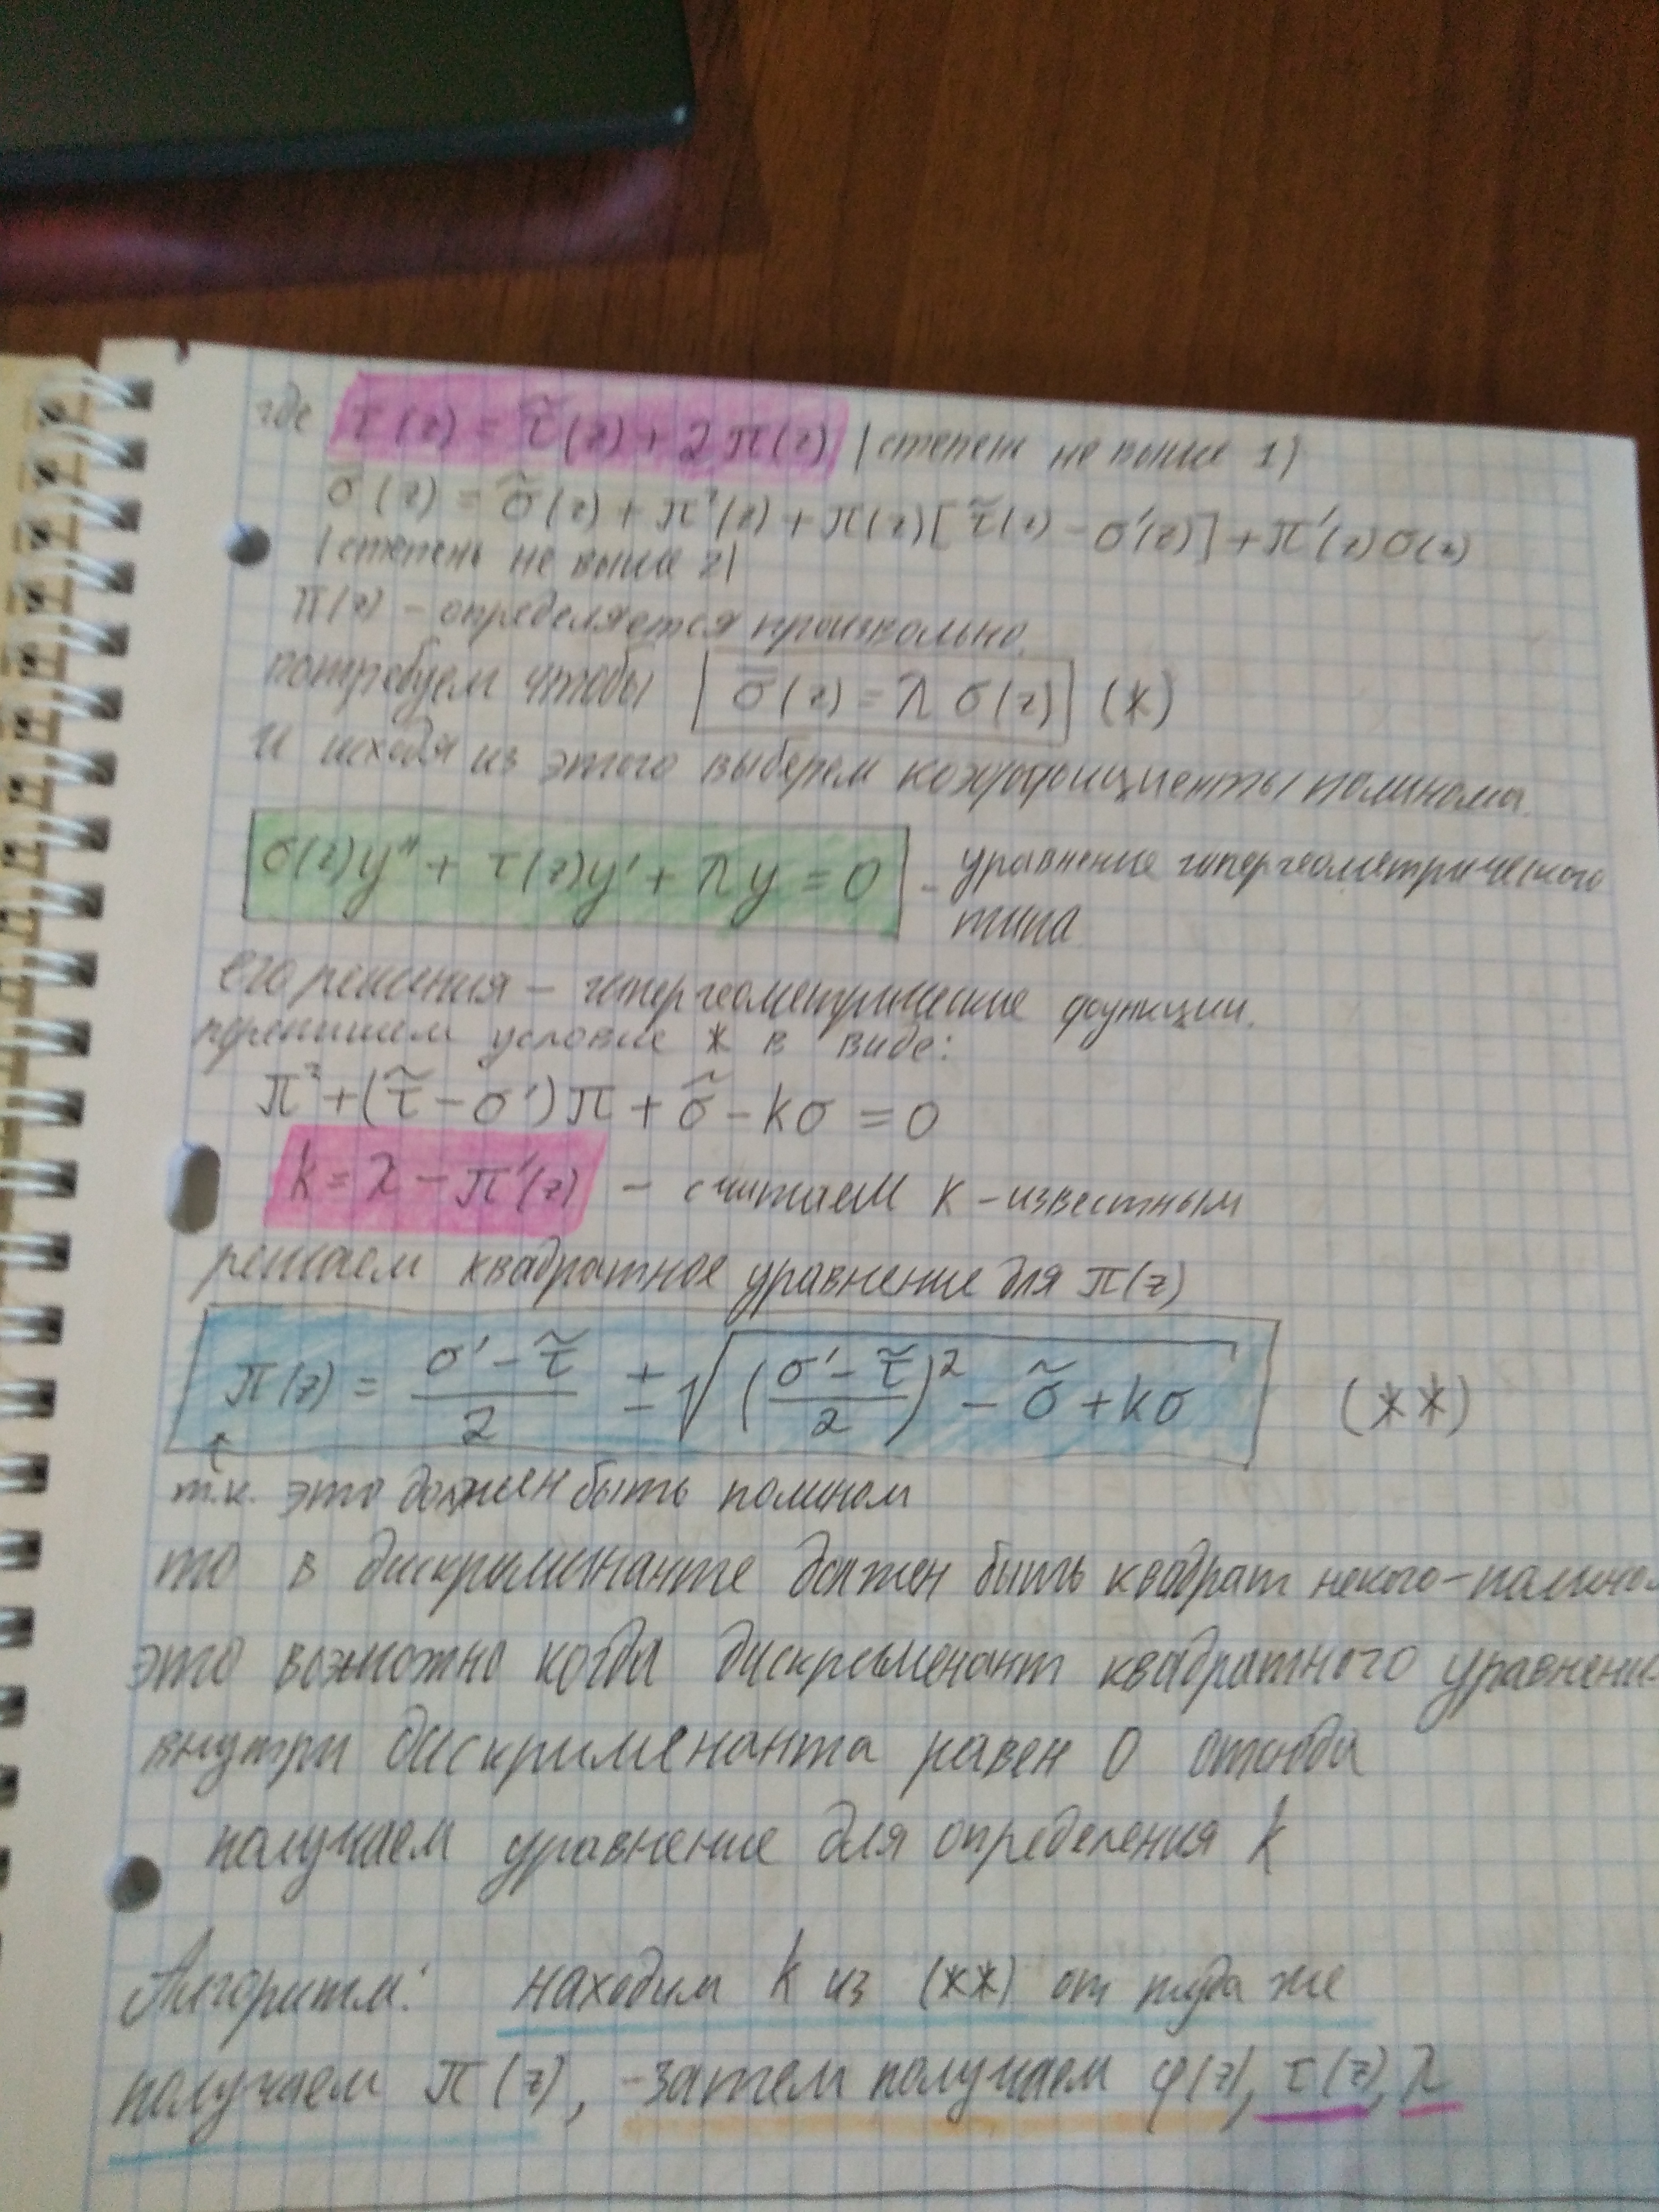 где τ(z) = τ̃(z) + 2π(z) (степень не выше 1)
σ̄(z) = σ̃(z) + π²(z) + π(z)[τ̃(z) - σ'(z)] + π'(z)σ(z)
(степень не выше 2)
π(z) - определяется произвольно.
потребуем чтобы σ̄(z) = λ σ(z) (*)
и исходя из этого выберем коэффициенты полинома.
σ(z)y'' + τ(z)y' + λy = 0 - уравнение гипергеометрического
типа
его решения - гипергеометрические функции.
перепишем условие * в виде:
π² + (τ̃ - σ')π + σ̃ - kσ = 0
k = λ - π'(z) - считаем k - известным
решаем квадратное уравнение для π(z)
π(z) = (σ' - τ̃)/2 ± √(((σ' - τ̃)/2)² - σ̃ + kσ) (**)
т.к. это должен быть полином
то в дискриминанте должен быть квадрат некого-полино
это возможно когда дискременант квадратного уравнени
внутри дискрименанта равен 0 отсюда
получаем уравнение для определения k
Алгоритм: находим k из (**) от туда же
получаем π(z), -затем получаем φ(z), τ(z), λ